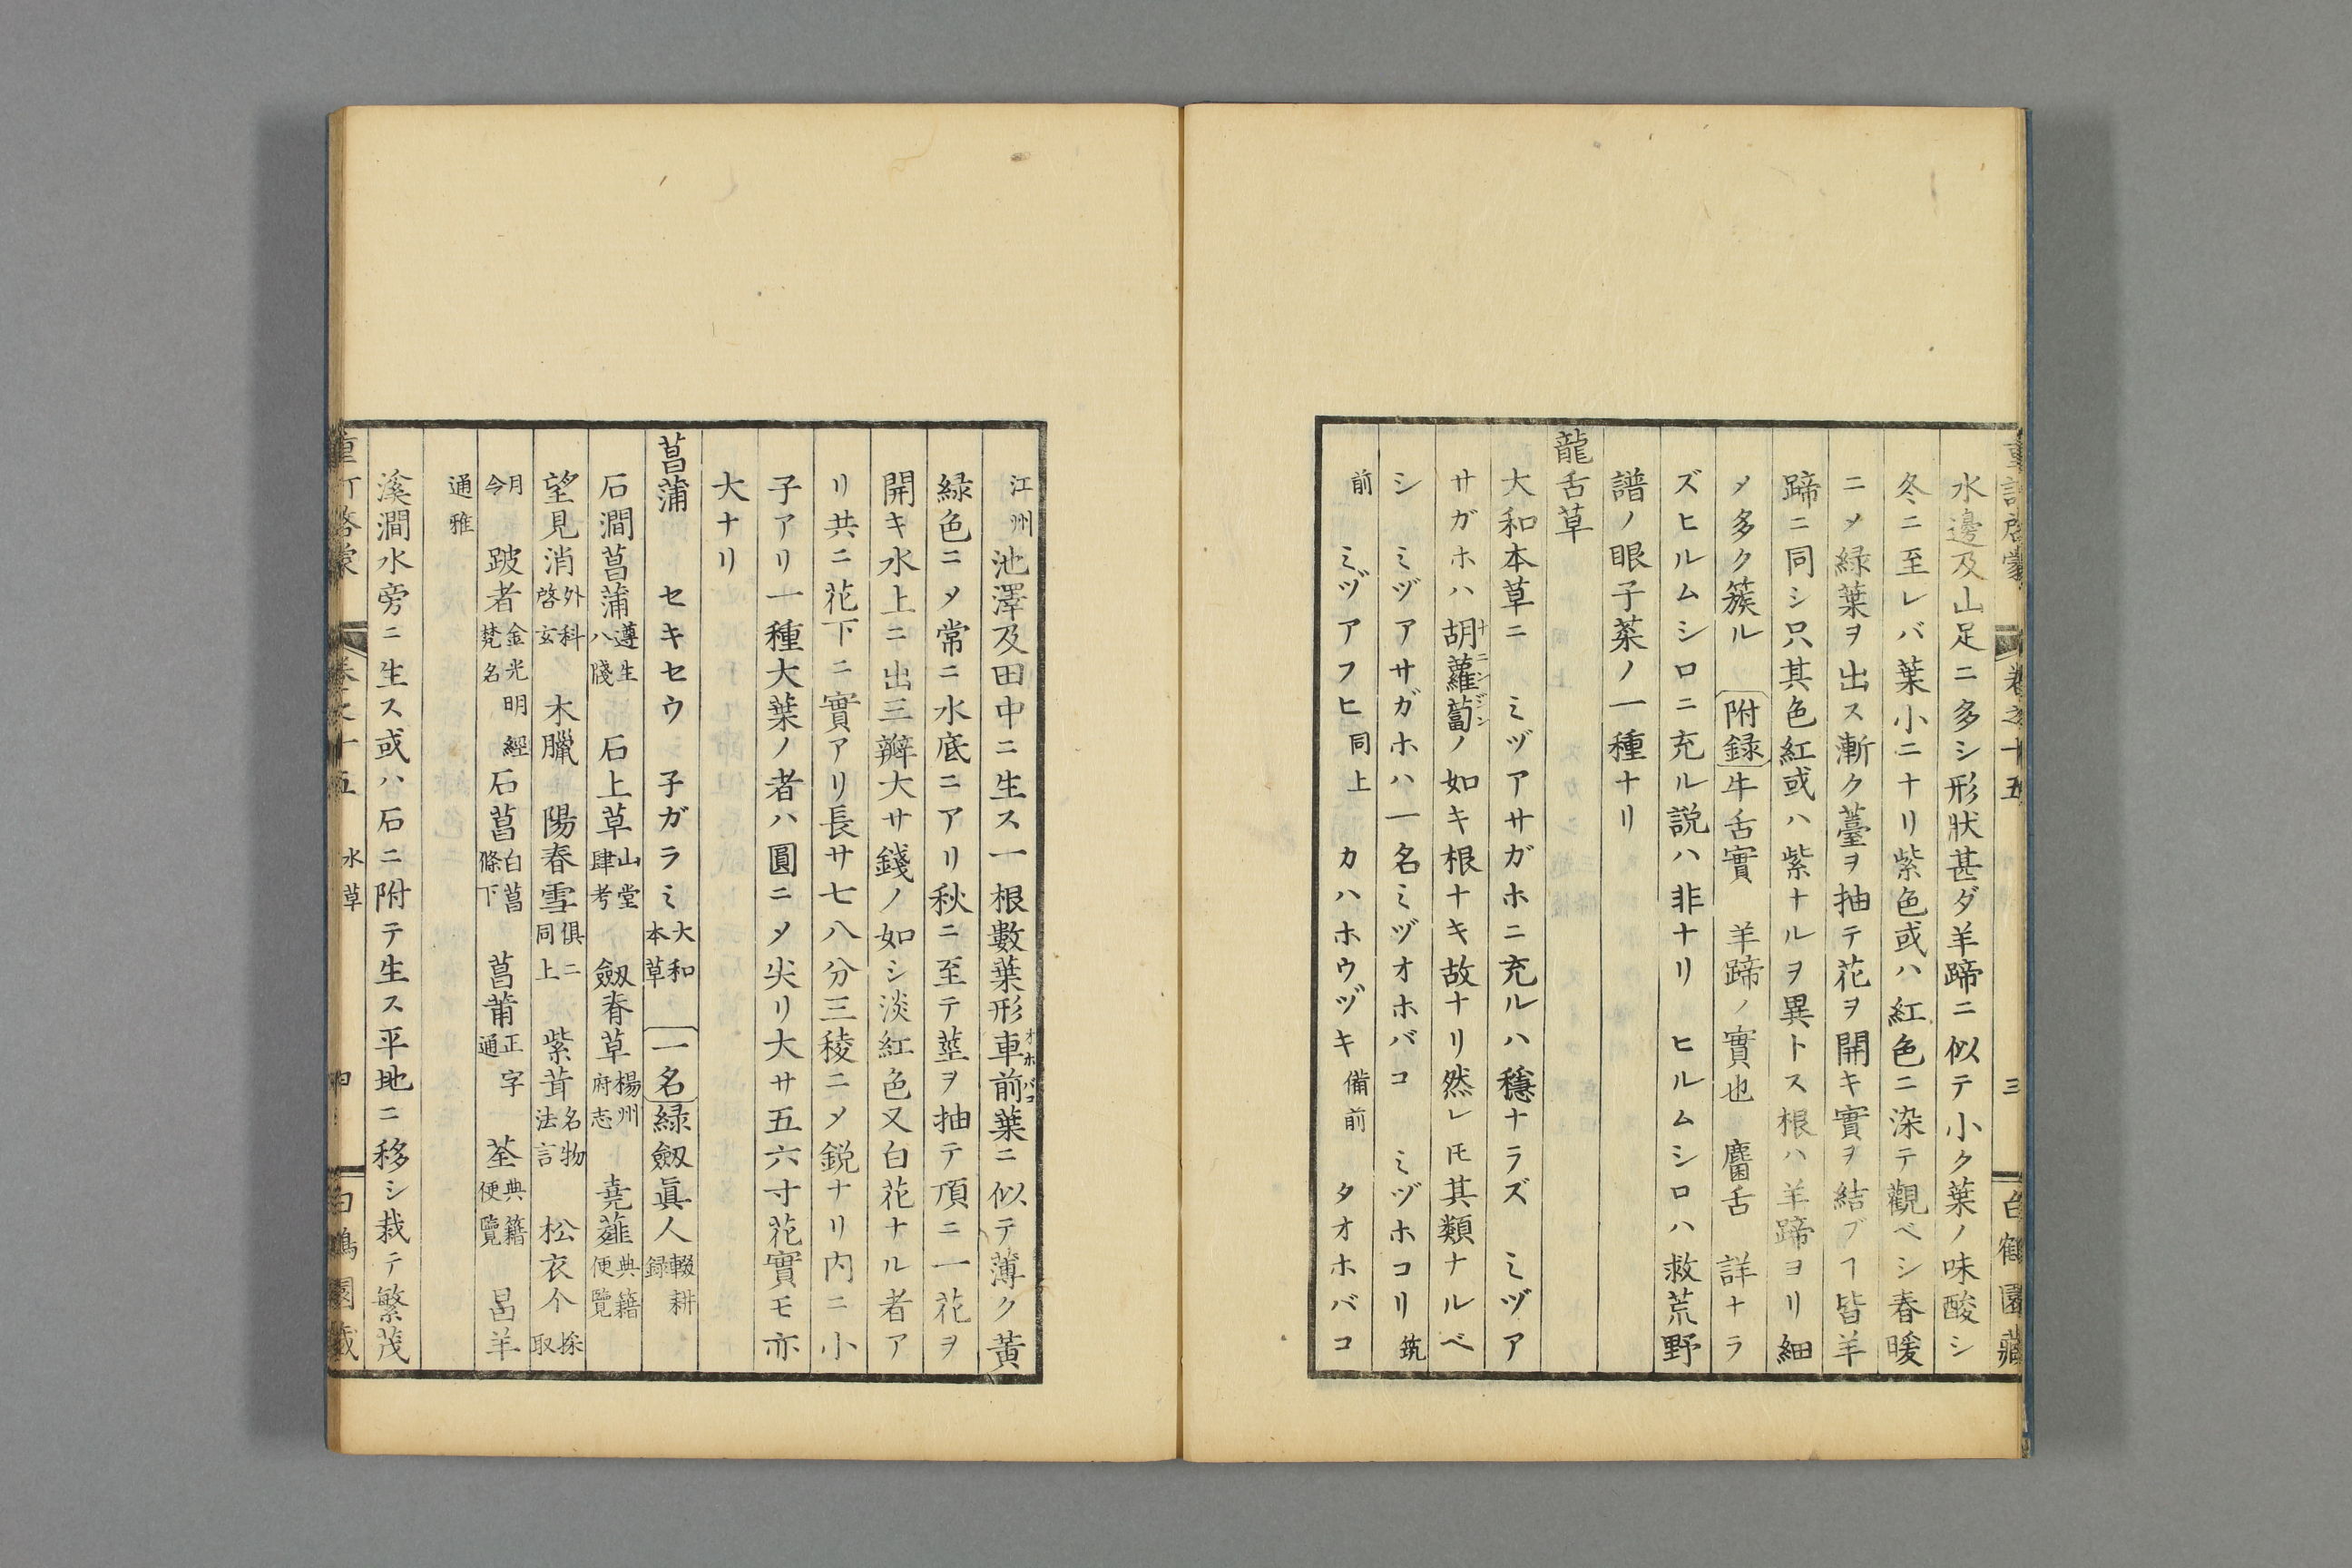 重訂啓蒙 卷之十五 三 白鶴園藏
水邊及山足ニ多シ形狀甚ダ羊蹄ニ似テ小ク葉ノ味酸シ
冬ニ至レバ葉小ニナリ紫色或ハ紅色ニ染テ觀ベシ春暖
ニメ緑葉ヲ出ス漸ク薹ヲ抽テ花ヲ開キ實ヲ結ブヿ皆羊
蹄ニ同シ只其色紅或ハ紫ナルヲ異トス根ハ羊蹄ヨリ細
メ多ク簇ル 附録 牛舌實 羊蹄ノ實也 麕舌 詳ナラ
ズヒルムシロニ充ル説ハ非ナリ ヒルムシロハ救荒野
譜ノ眼子菜ノ一種ナリ
龍舌草
大和本草ニ ミヅアサガホニ充ルハ穩ナラズ ミヅア
サガホハ胡蘿蔔ナニンジンノ如キ根ナキ故ナリ然レ𪜈其類ナルベ
シ ミヅアサガホハ一名ミヅオホバコ ミヅホコリ 筑
前 ミヅアフヒ 同上 カハホウヅキ 備前 タオホバコ
江州 池澤及田中ニ生ス一根數葉形車前オホバコ葉ニ似テ薄ク黄
緑色ニメ常ニ水底ニアリ秋ニ至テ莖ヲ抽テ頂ニ一花ヲ
開キ水上ニ出三瓣大サ錢ノ如シ淡紅色又白花ナル者ア
リ共ニ花下ニ實アリ長サ七八分三稜ニメ鋭ナリ内ニ小
子アリ一種大葉ノ者ハ圓ニメ尖リ大サ五六寸花實モ亦
大ナリ
菖蒲 セキセウ 子ガラミ 大和本草 一名 緑劔眞人 輟耕録
石澗菖蒲 遵生八牋 石上草 山堂肆考 劔脊草 楊州府志 堯薤 典籍便覽
望見消 外科啓玄 木臘 陽春雪 俱ニ同上 紫茸 名物法言 松衣亽 採取
月令 跛者 金光明經梵名 石菖 白菖條下 菖莆 正字通 荃 典籍便覽 昌羊
通雅
溪澗水旁ニ生ス或ハ石ニ附テ生ス平地ニ移シ栽テ繁茂